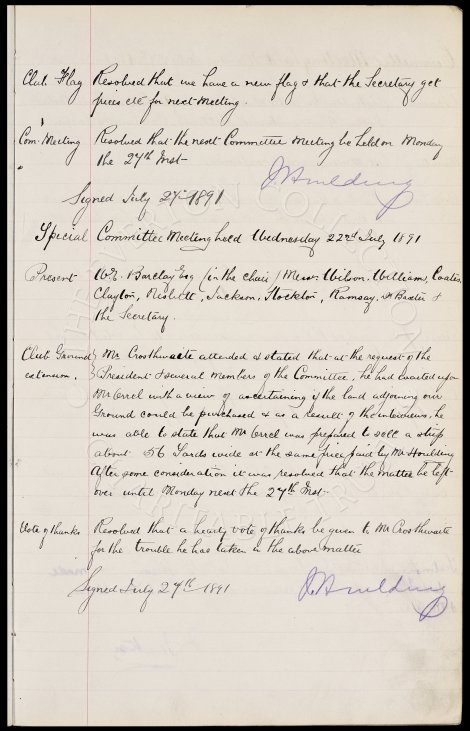 Club Flag Resolved that we have a new flag & that the Secretary get
prices etc for next meeting.
Com. Meeting Resolved that the next Committee Meeting be held on Monday
the 27th Inst-
J Houlding
Signed July 27th 1891
Special Committee Meeting held Wednesday 22nd July 1891
Present W.E. Barclay Esq (in the chair) Messrs Wilson, Williams, Coates,
Clayton, Nisbett, Jackson, Stockton, Ramsay, Dr Baxter &
the Secretary.
Club Ground } Mr Crosthwaite attended & stated that at the request of the
extension. } President & several members of the Committee, he had waited upon
Mr Orrel with a view of ascertaining if the land adjoining our
Ground could be purchased & as a result of the interviews, he
was able to state that Mr Orrel was prepared to sell a strip
about 56 Yards wide at the same price paid by Mr Houlding
After some consideration it was resolved that the matter be left
over until Monday next the 27th Inst-
Vote of thanks Resolved that a hearty vote of thanks be given to Mr Crosthwaite
for the trouble he has taken in the above matter
Signed July 27th 1891 J Houlding